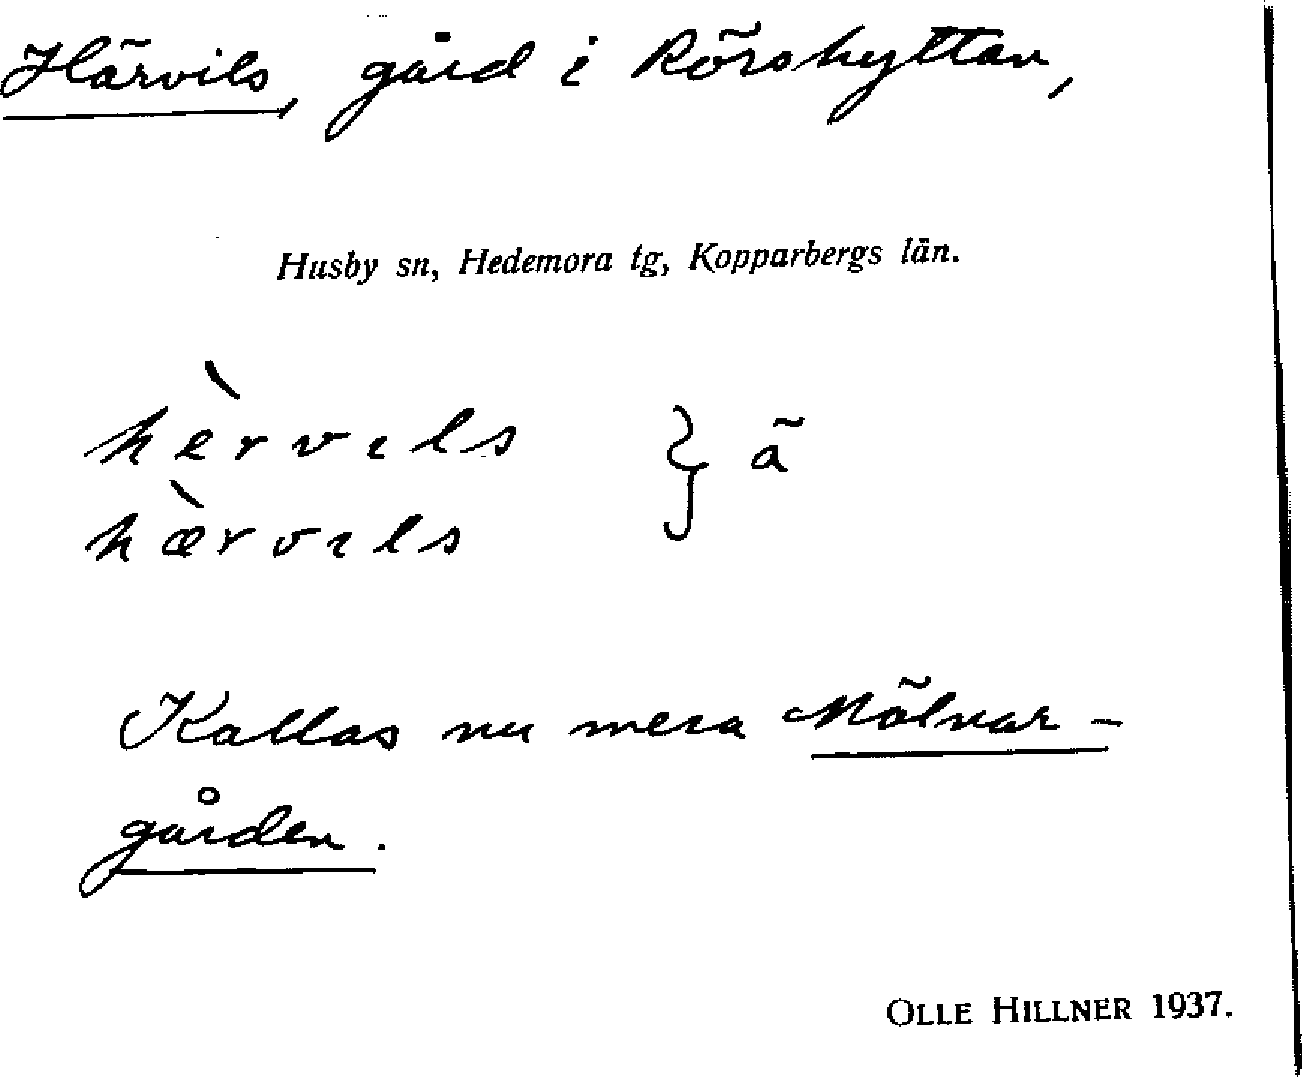 Härvils, gård i Rörshyttan,
Husby sn, Hedemora tg, Kopparbergs län.
hèrvɩls } ä
hærvɩls
Kallas nu mera Mölnar-
gården.
OLLE HILLNER 1937.